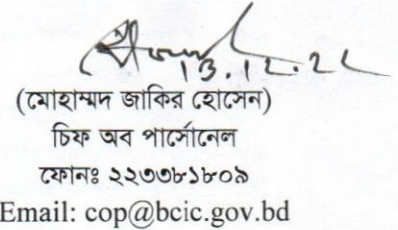 13.12.22
(মোহাম্মদ জাকির হোসেন)
চিফ অব পার্সোনেল
ফোনঃ ২২৩৩৮১৮০৯
Email: cop@bcic.gov.bd